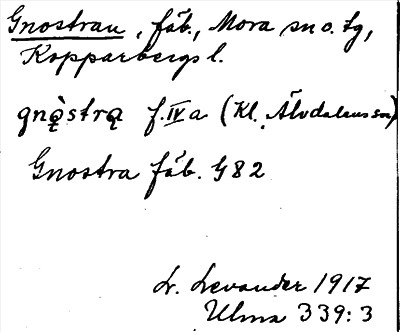 Gnostrau, fäb., Mora sn o. tg,
Kopparbergs l.
gnòstrą f. IV a (Kl. Älvdalens sn)
Gnostra fäb. G 82
L. Levander 1917
Ulma 339:3